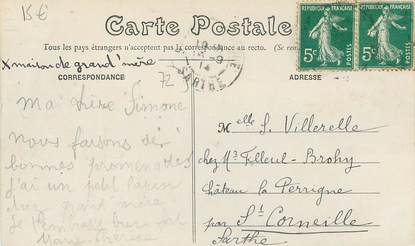 15€
Carte Postale
Tous les pays étrangers n'acceptent pas la correspondance au recto. (Se
RÉPUBLIQUE FRANÇAISE
5c POSTES
RÉPUBLIQUE FRANÇAISE
5c POSTES
x maison de grand'mère
CORRESPONDANCE
72
SARTHE
ADRESSE
Ma chère Simone
Nous faisons de
bonnes promenades
j'ai un petit lapin
grand mère
Je t'embrasse bien
Marie Thérèse
Melle S. Villerelle
chez Mr Filleul-Brohy
château La Perrigne
par St Corneille
Sarthe